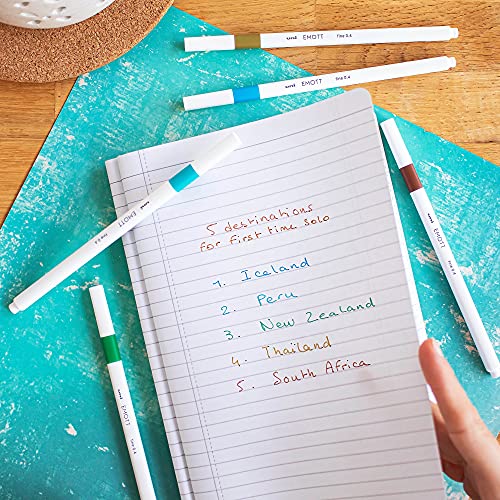 uni EMOTT fine 0.4
uni EMOTT fine 0.4
5 destinations
for first time solo
1. Iceland
2. Peru
3. New Zealand
4. Thaïland
5. South Africa
uni EMOTT fine 0.4
uni EMOTT
uni EMOTT